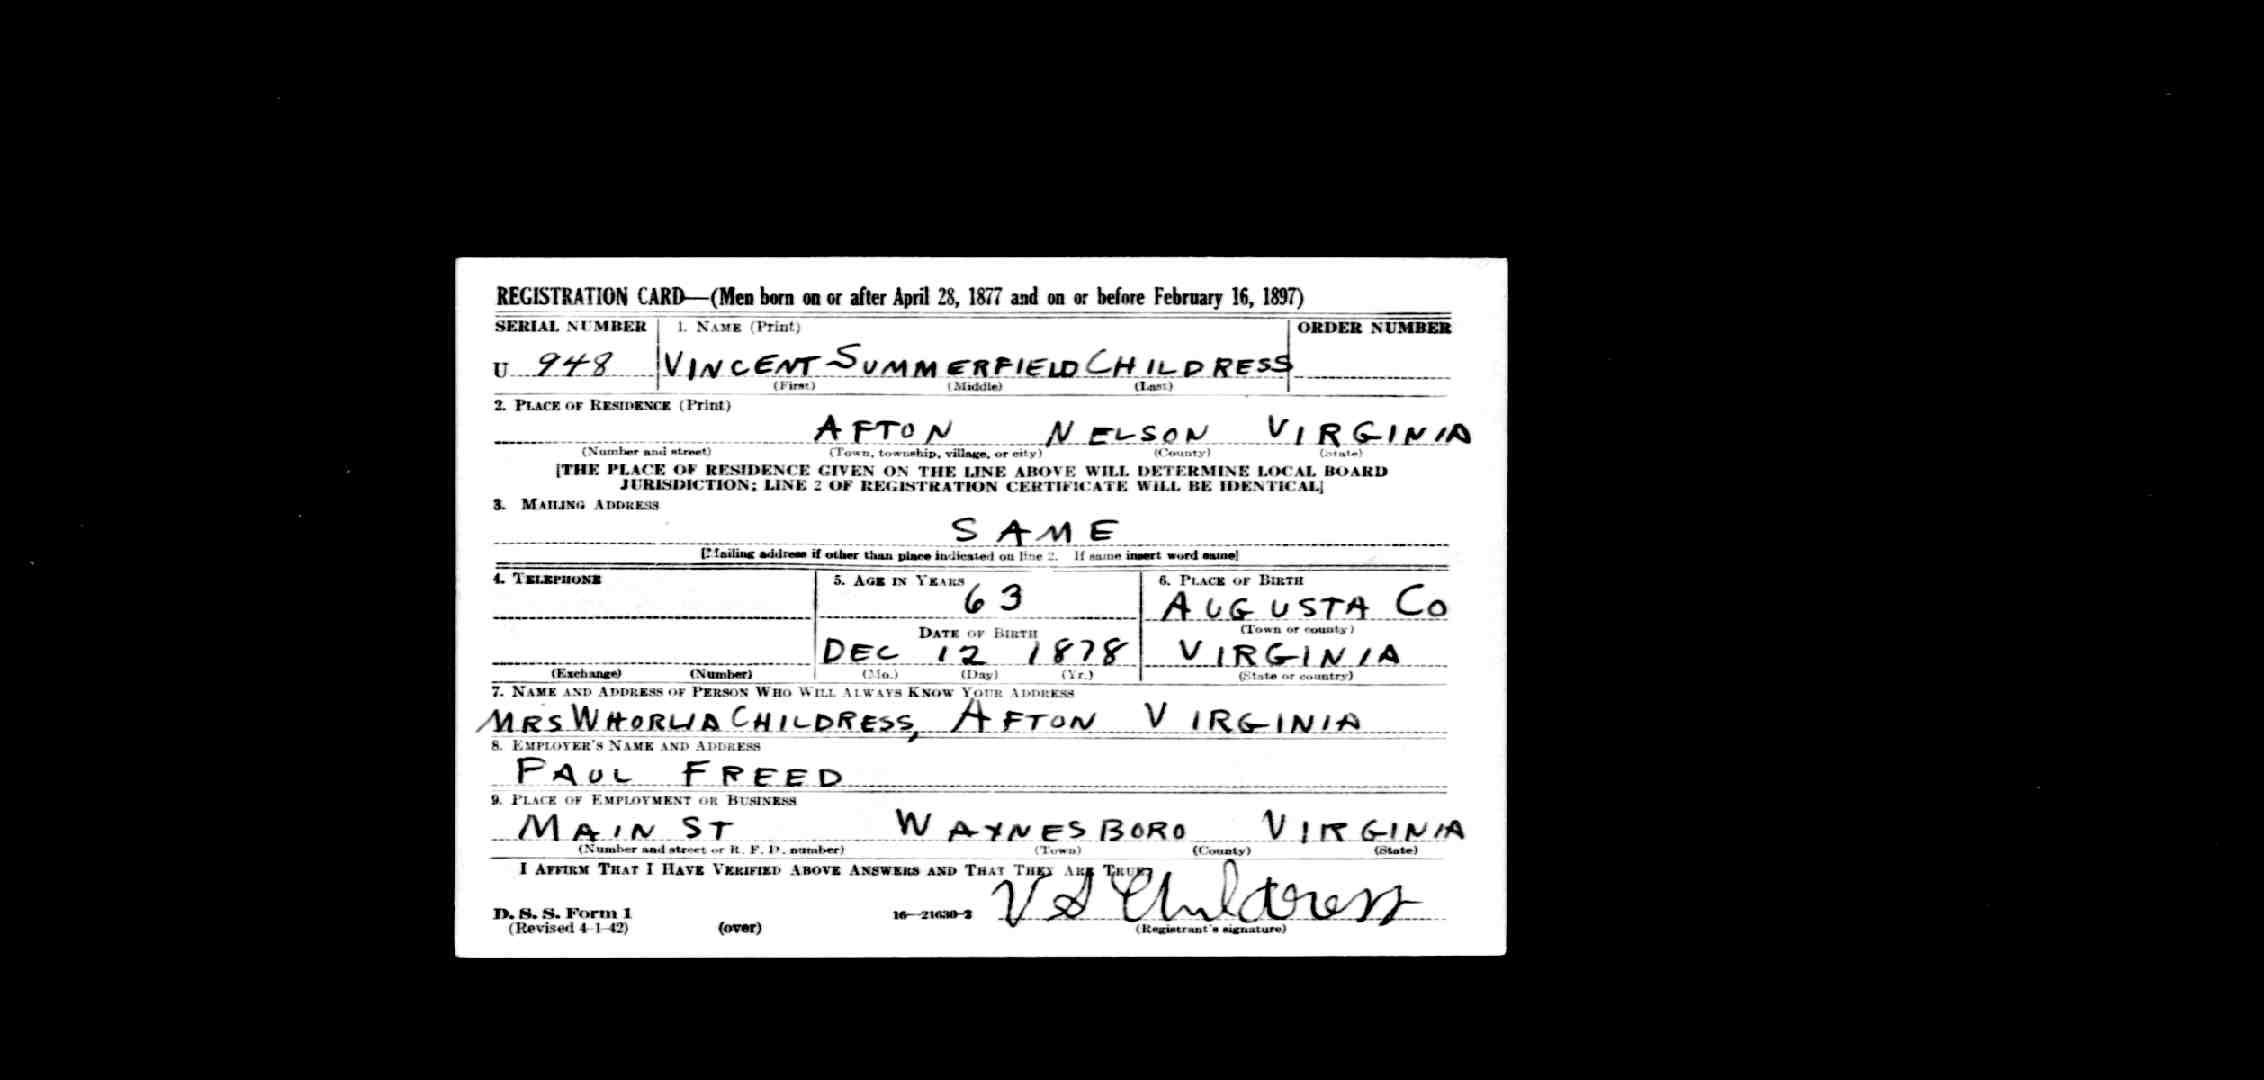 REGISTRATION CARD—(Men born on or after April 28, 1877 and on or before February 16, 1897)
SERIAL NUMBER 1. NAME (Print) ORDER NUMBER
U 948 VINCENT SUMMERFIELD CHILDRESS
(First) (Middle) (Last)
2. PLACE OF RESIDENCE (Print)
AFTON NELSON VIRGINIA
(Number and street) (Town, township, village, or city) (County) (State)
[THE PLACE OF RESIDENCE GIVEN ON THE LINE ABOVE WILL DETERMINE LOCAL BOARD
JURISDICTION; LINE 2 OF REGISTRATION CERTIFICATE WILL BE IDENTICAL]
3. MAILING ADDRESS
SAME
[Mailing address if other than place indicated on line 2. If same insert word same]
4. TELEPHONE 5. AGE IN YEARS 6. PLACE OF BIRTH
63 AUGUSTA CO
DATE OF BIRTH (Town or county)
DEC 12 1878 VIRGINIA
(Exchange) (Number) (Mo.) (Day) (Yr.) (State or country)
7. NAME AND ADDRESS OF PERSON WHO WILL ALWAYS KNOW YOUR ADDRESS
MRS CHILDRESS, AFTON VIRGINIA
8. EMPLOYER'S NAME AND ADDRESS
PAUL FREED
9. PLACE OF EMPLOYMENT OR BUSINESS
MAIN ST WAYNESBORO VIRGINIA
(Number and street or R. F. D. number) (Town) (County) (State)
I AFFIRM THAT I HAVE VERIFIED ABOVE ANSWERS AND THAT THEY ARE TRUE.
V S Childress
D. S. S. Form 1 16—21630-2
(Revised 4-1-42) (over) (Registrant's signature)